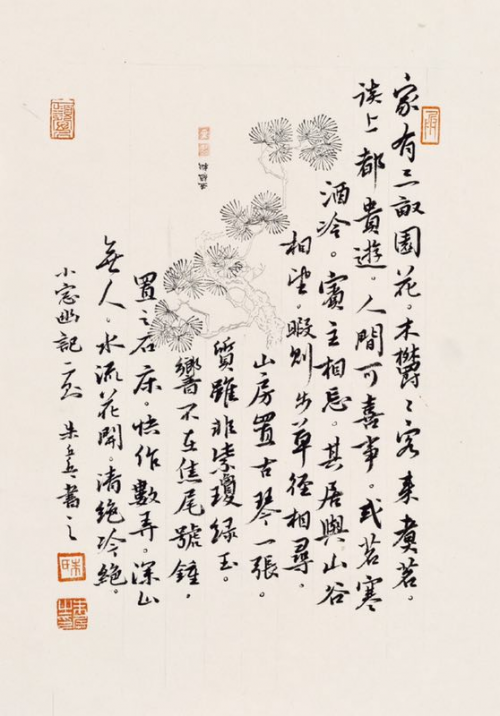 家有三畝園花。木欝〻客来煮茗。
談上都貴遊。人間可喜事。或茗寒
酒冷。賓主相忘。其居與山谷
相望。暇則步草徑相尋。
山房置古琴一張。
質雖非紫瓊绿玉。
響不在焦尾號鍾，
置之石床。快作數弄。深山
無人。水流花開。清絶冷絶。
小窓幽記二則 朱書之